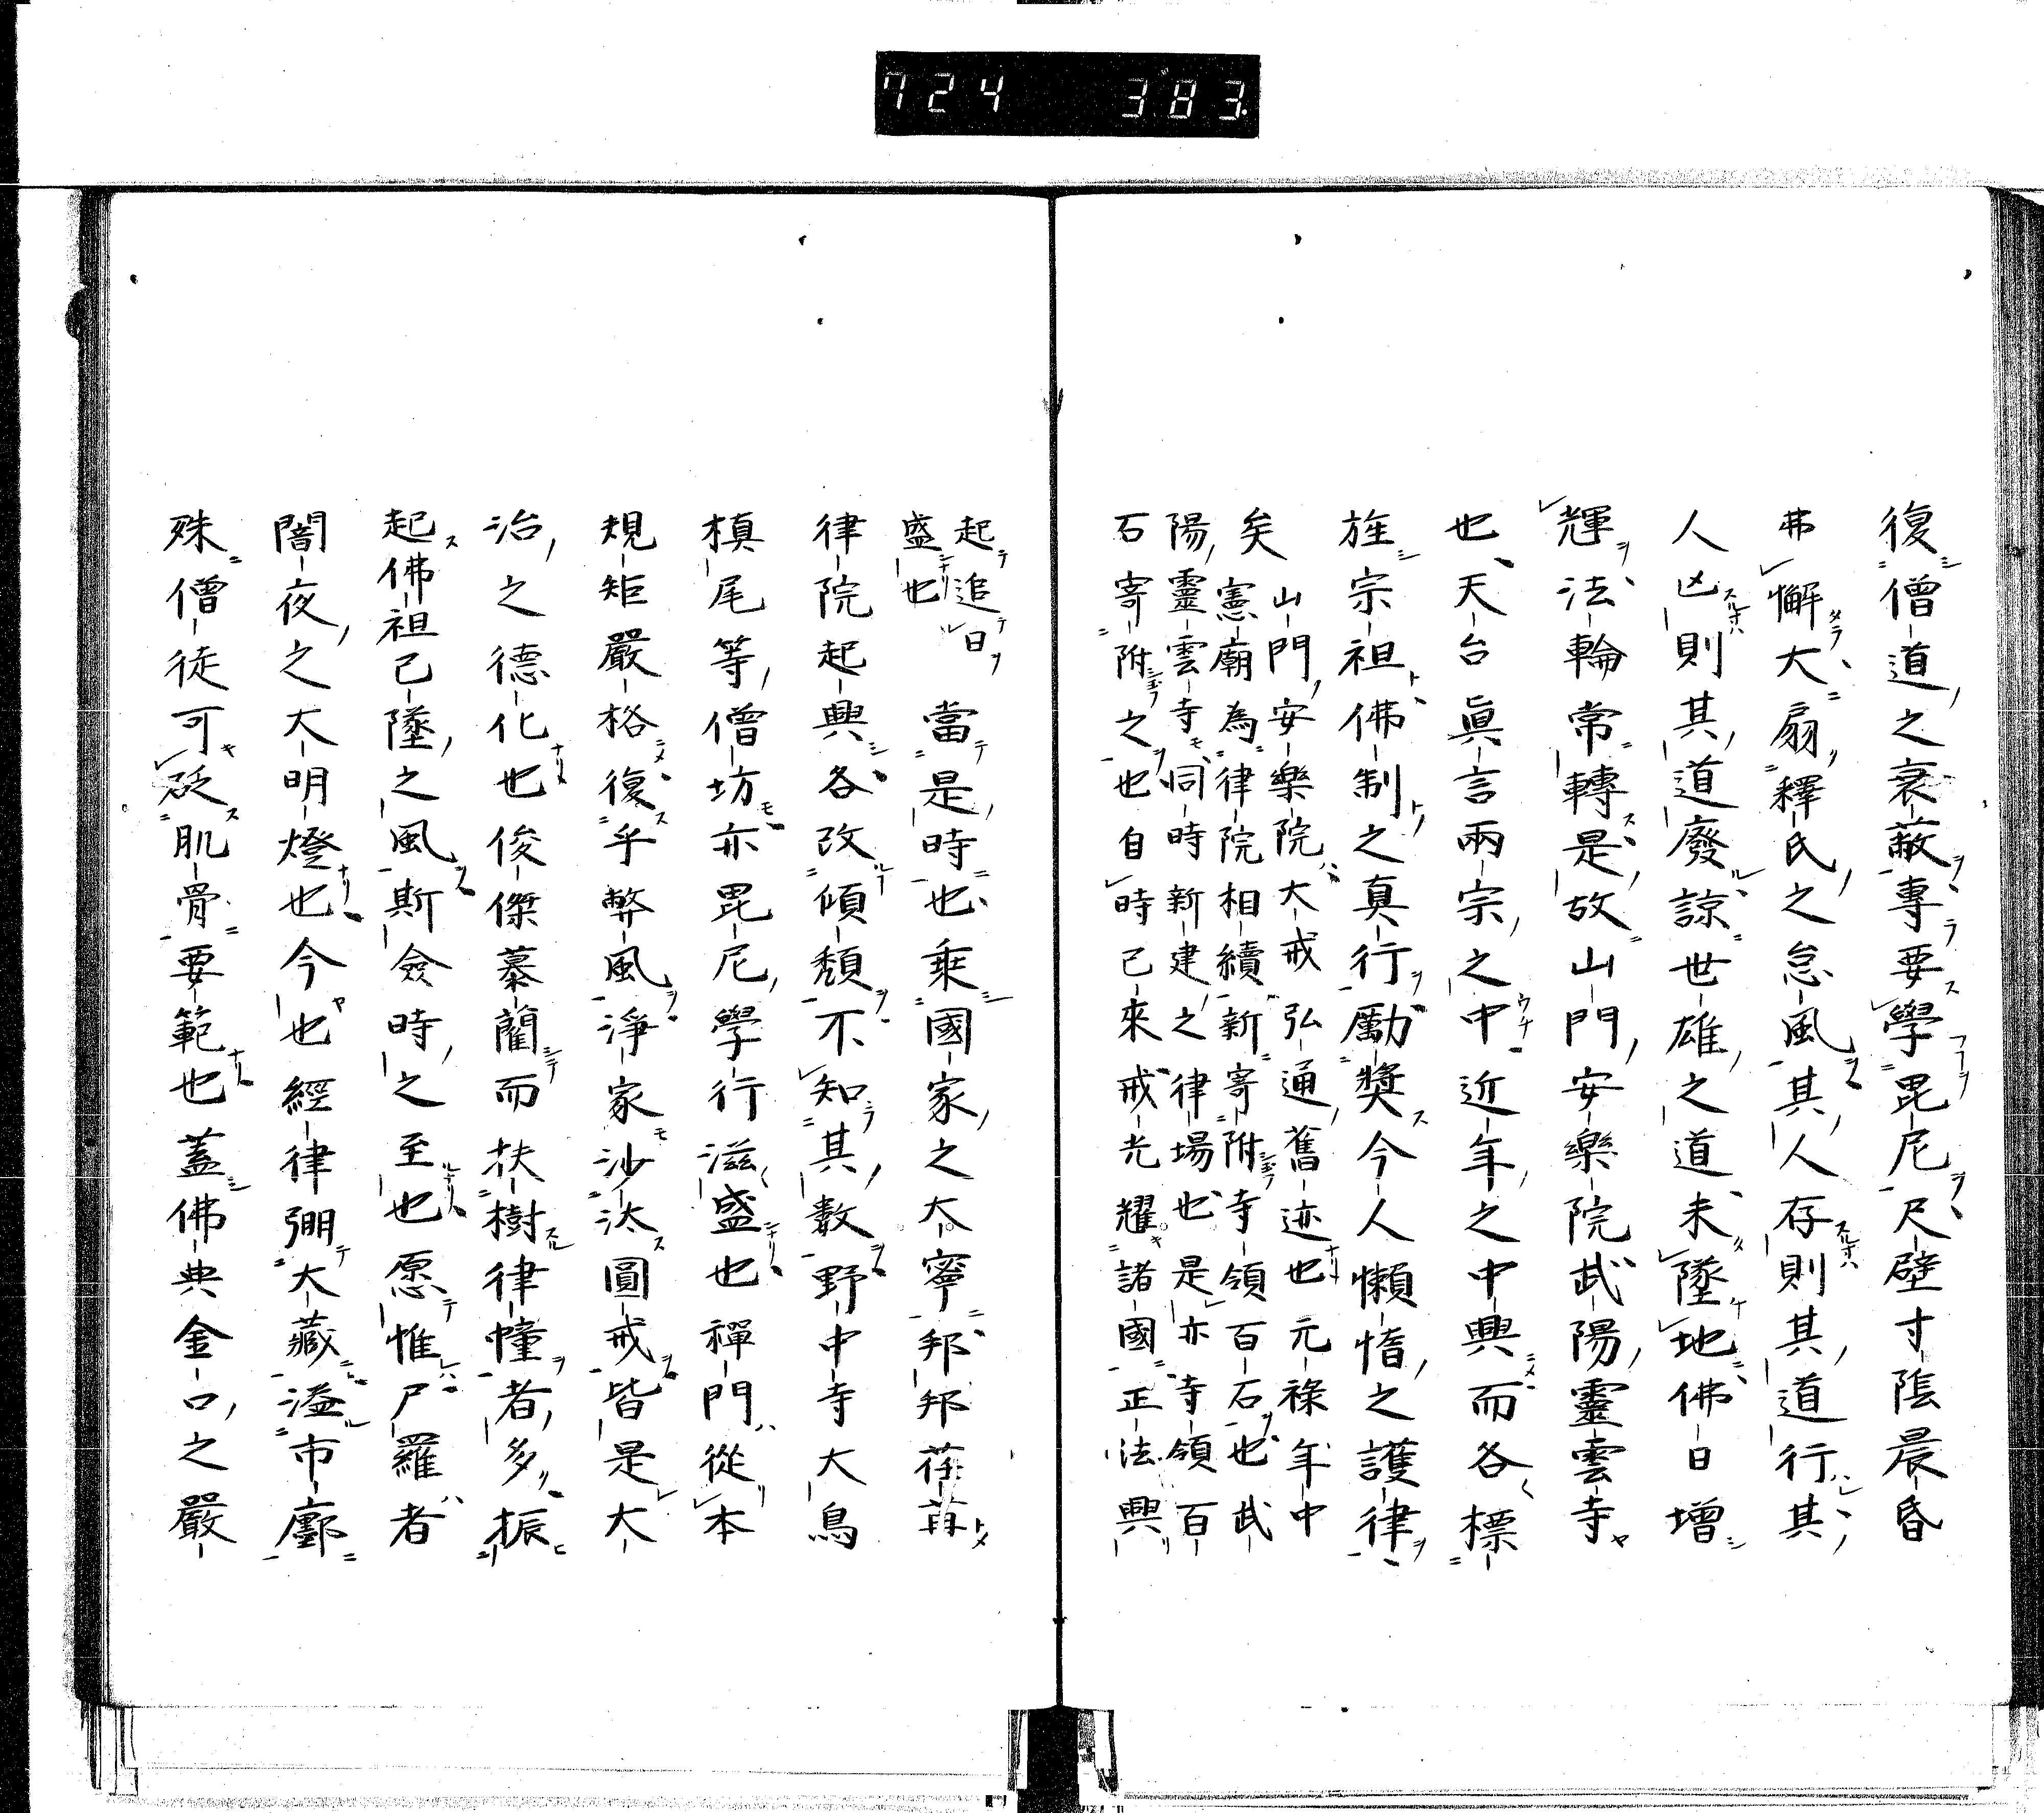 724 383
復僧道之衰蔽專要學毘尼尺壁寸陰晨昏
弗懈大扇釋氏之怠風其人存則其道行其
人凶則其道廢諒世雄之道未墜地佛日增
輝法輪常轉是故山門安樂院武陽靈雲寺
也天台眞言兩宗之中近年之中興而各標
旌宗祖佛制之真行勵獎今人懶惰之護律
矣
山門安樂院大戒弘通舊迹也元祿年中
憲廟為律院相續新寄附寺領百石也武
陽靈雲寺同時新建之律場也是亦寺領百
石寄附之也自時已來戒光耀諸國正法興
起追日
盛也
當是時也乘國家之大寧邦邦荏苒
律院起興各改傾頽不知其數野中寺大鳥
槙尾等僧坊亦毘尼學行滋盛也禪門從本
規矩嚴格復乎弊風淨家沙汰圓戒皆是大
治之德化也俊傑慕藺而扶樹律幢者多振
起佛祖已墜之風斯僉時之至也愿惟尸羅者
闇夜之大明燈也今也經律弸大藏溢市廛
殊僧徒可砭肌骨要範也蓋佛典金口之嚴